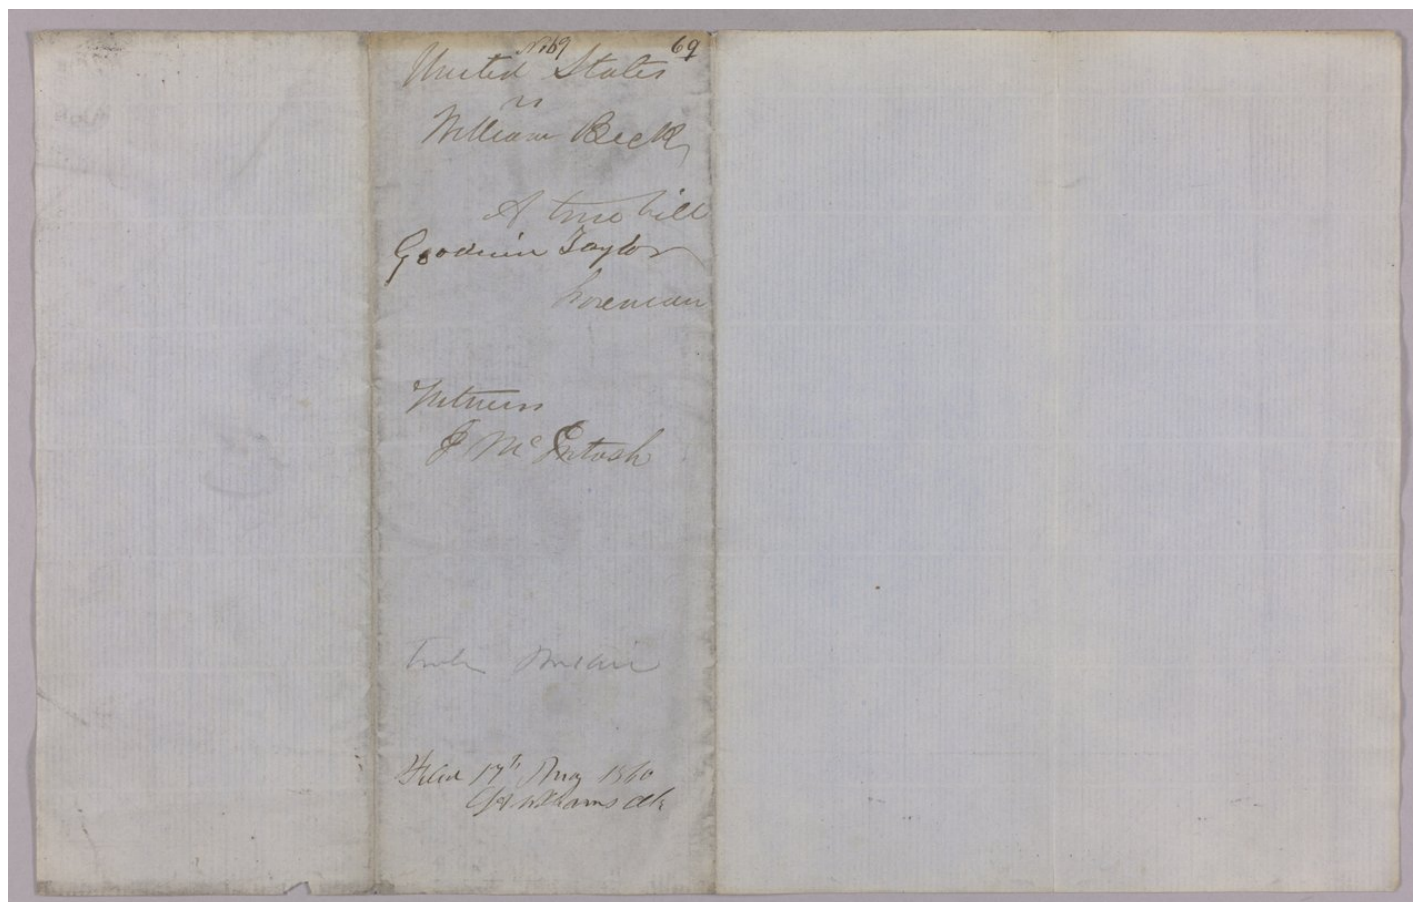 No 69 69
United States
vs
William Beck
A true bill
Goodwin Taylor
Foreman
Witness
J McIntosh
Filed 17th 1860
Williams clk